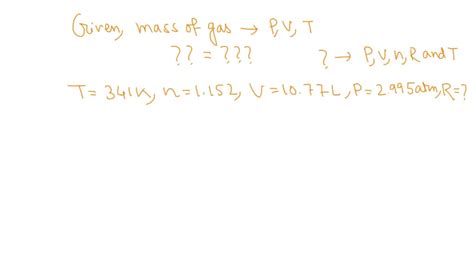 Given, mass of gas → P, V, T
?? = ??? ? → P, V, n, R and T
T = 341K, n = 1.152, V = 10.77L, P = 2.995atm, R = ?